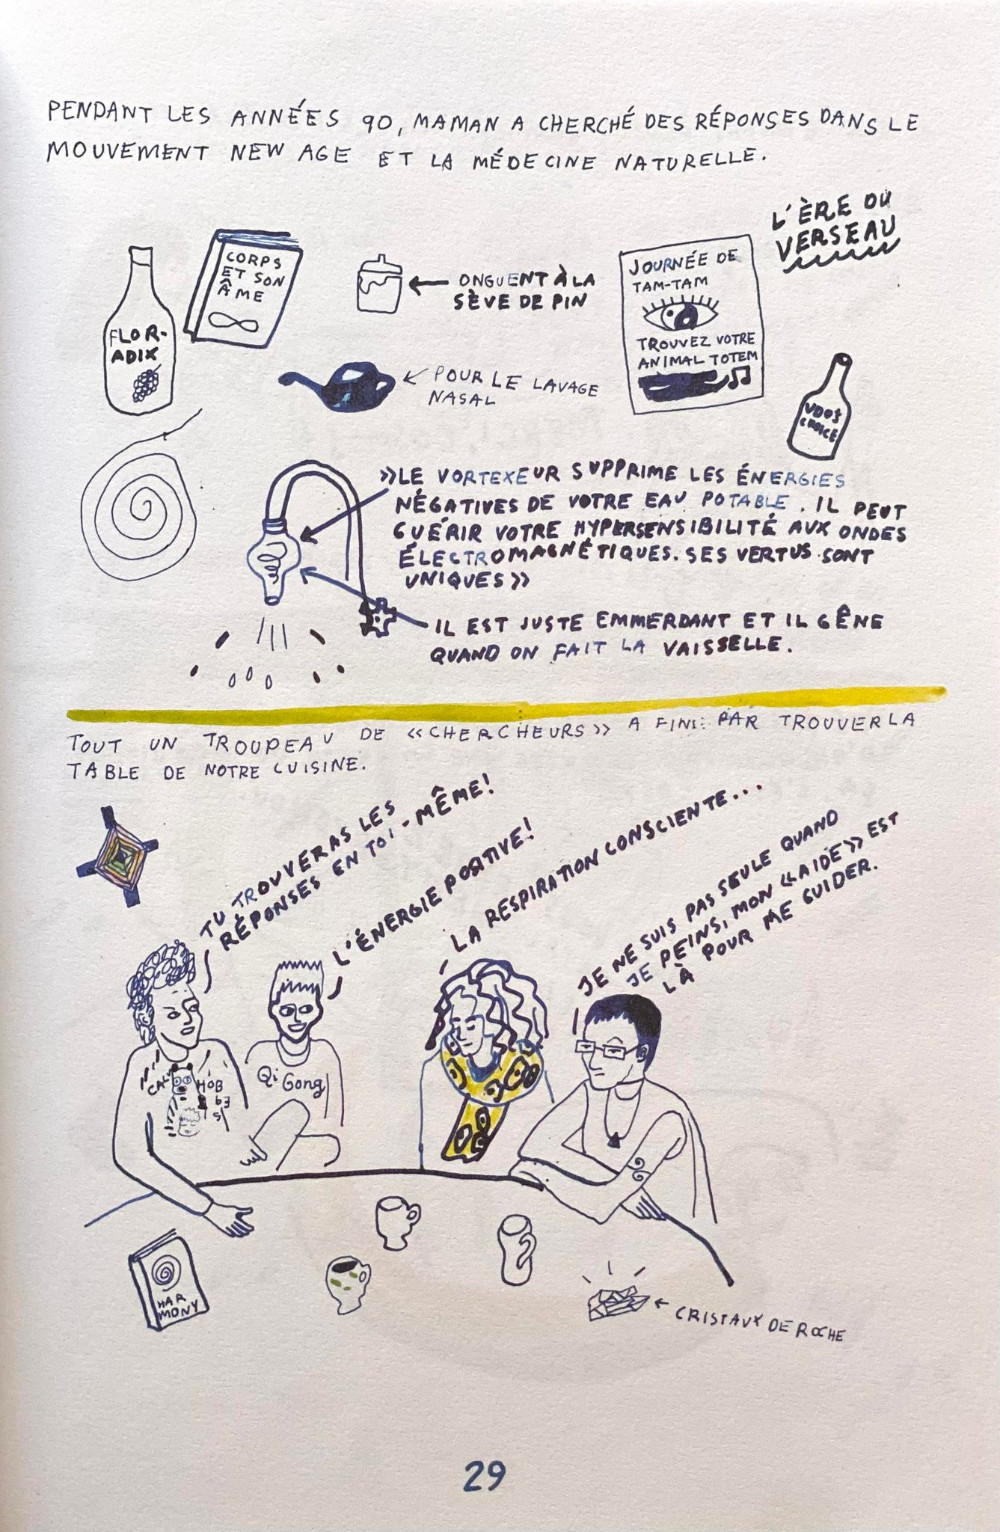 PENDANT LES ANNÉES 90, MAMAN A CHERCHÉ DES RÉPONSES DANS LE
MOUVEMENT NEW AGE ET LA MÉDECINE NATURELLE.
L'ÈRE DU
VERSEAU
FLOR-
ADIX
CORPS
ET SON
ÂME
ONGUENT À LA
SÈVE DE PIN
JOURNÉE DE
TAM-TAM
TROUVEZ VOTRE
ANIMAL TOTEM
POUR LE LAVAGE
NASAL
UDO'S
CHOICE
»LE VORTEXEUR SUPPRIME LES ÉNERGIES
NÉGATIVES DE VOTRE EAU POTABLE. IL PEUT
GUÉRIR VOTRE HYPERSENSIBILITÉ AUX ONDES
ÉLECTROMAGNÉTIQUES. SES VERTUS SONT
UNIQUES»
IL EST JUSTE EMMERDANT ET IL GÊNE
QUAND ON FAIT LA VAISSELLE.
TOUT UN TROUPEAU DE «CHERCHEURS» A FINI PAR TROUVER LA
TABLE DE NOTRE CUISINE.
TU TROUVERAS LES
RÉPONSES EN TOI-MÊME!
L'ÉNERGIE POSITIVE!
LA RESPIRATION CONSCIENTE...
JE NE SUIS PAS SEULE QUAND
JE PEINS, MON «AIDE» EST
LÀ POUR ME GUIDER.
Qi Gong
HAR
MONY
CRISTAUX DE ROCHE
29